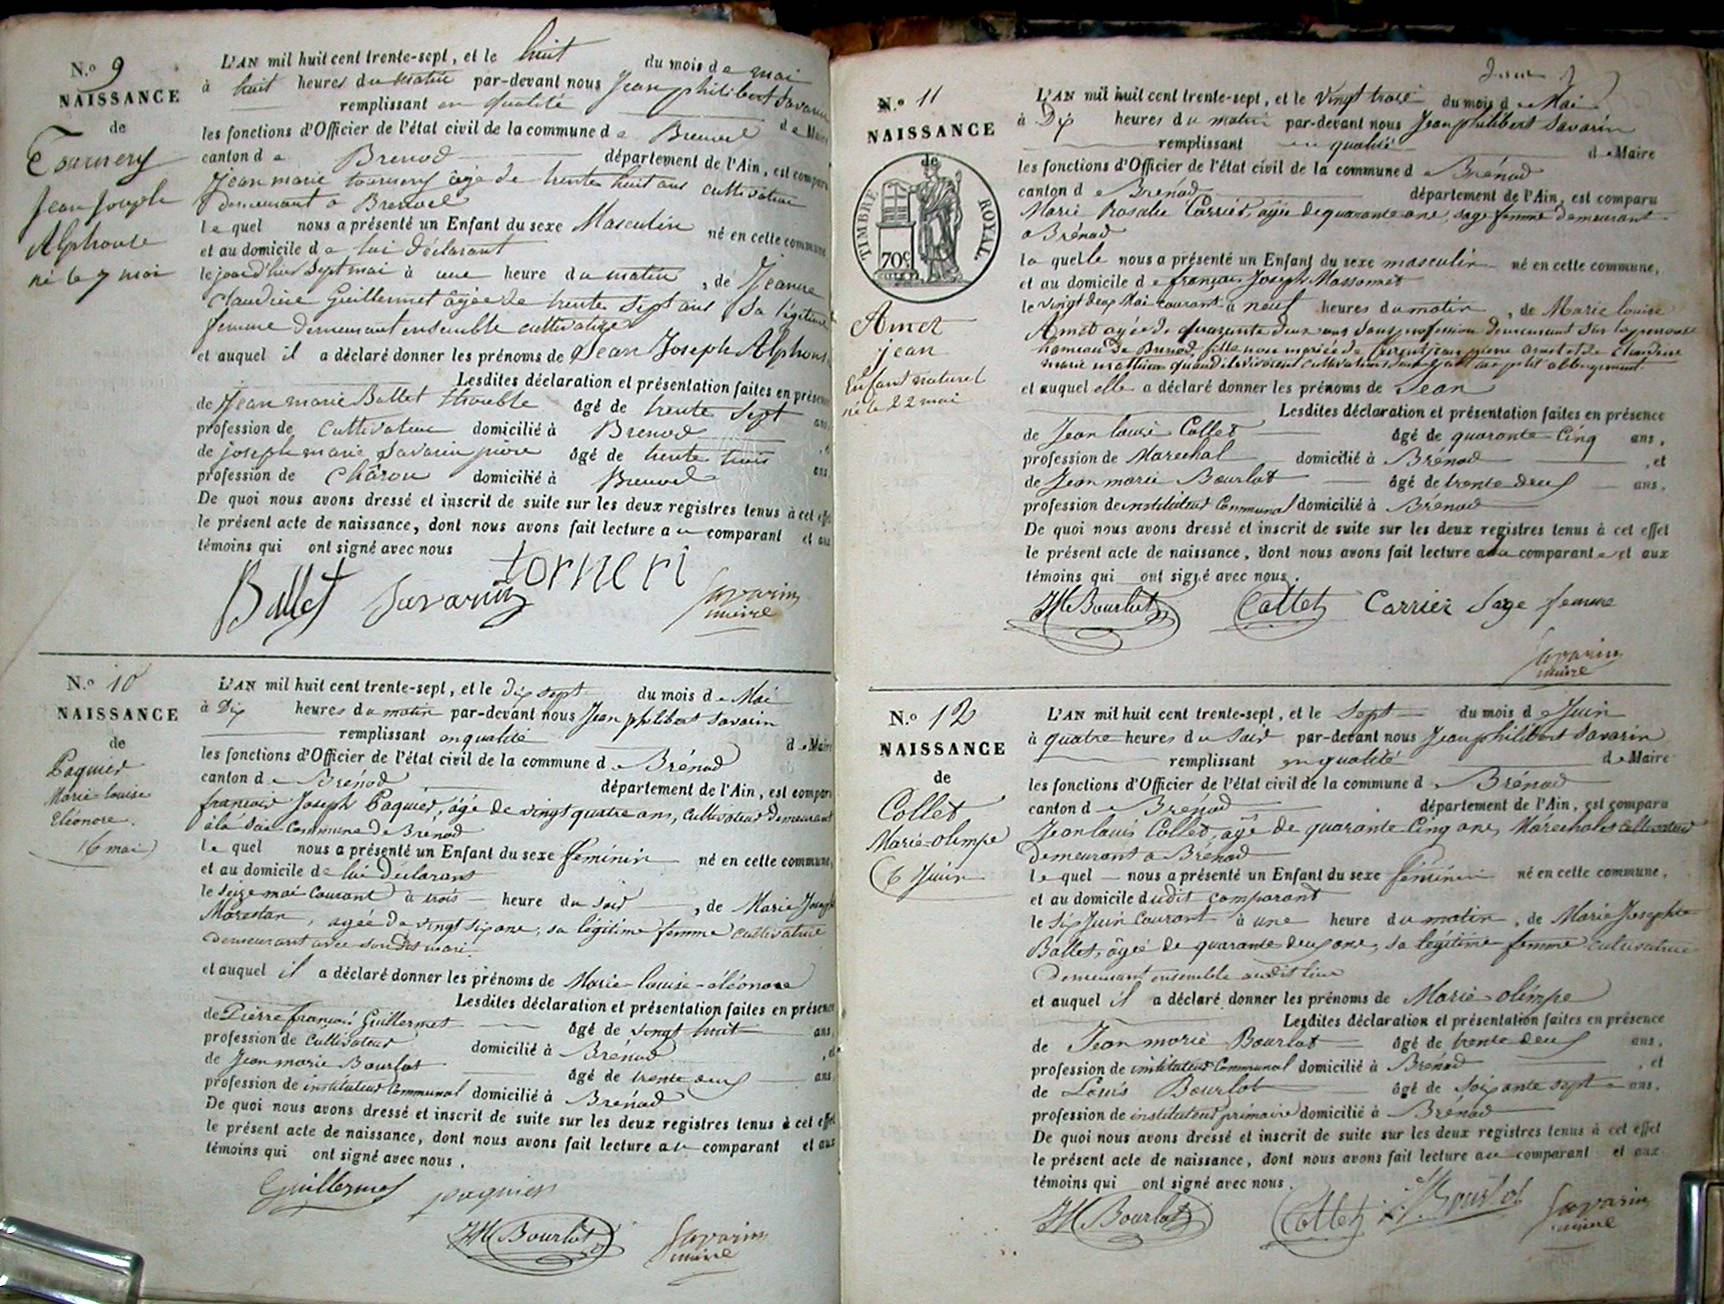 N.º 9
NAISSANCE
de
Tournery
Jean Joseph
Alphonse
né le 7 mai
L'AN mil huit cent trente-sept, et le huit du mois de mai
à huit heures du matin par-devant nous Jean philibert Savarin
remplissant en qualité de Maire
les fonctions d'Officier de l'état civil de la commune de Brenod
canton de Brenod département de l'Ain, est comparu
Jean marie tournery âgé de trente huit ans cultivateur
demeurant a Brenod
lequel nous a présenté un Enfant du sexe Masculin né en cette commune
et au domicile de lui déclarant
le jourd'hier sept mai à une heure du matin, de Jeanne
Claudine Guillermet âgée de trente sept ans sa légitime
femme demeurant ensemble cultivatrice
et auquel il a déclaré donner les prénoms de Jean Joseph Alphonse
Lesdites déclaration et présentation faites en présence
de Jean marie Ballet âgé de trente sept ans
profession de cultivateur domicilié à Brenod
de joseph marie Savarin âgé de trente trois ans
profession de Chârou domicilié à Brenod
De quoi nous avons dressé et inscrit de suite sur les deux registres tenus à cet effet
le présent acte de naissance, dont nous avons fait lecture au comparant et aux
témoins qui ont signé avec nous
Ballet Savarin torneri Savarin
maire
N.º 10
NAISSANCE
de
Paquier
Marie-louise
Eléonore.
16 mai
L'AN mil huit cent trente-sept, et le dix sept du mois de Mai
à Dix heures du matin par-devant nous Jean philibert Savarin
remplissant en qualité de Maire
les fonctions d'Officier de l'état civil de la commune de Brénod
canton de Brénod département de l'Ain, est comparu
françois Joseph Paquier, âgé de vingt quatre ans, cultivateur demeurant
à la dite commune de Brenod
lequel nous a présenté un Enfant du sexe féminin né en cette commune,
et au domicile de lui déclarant
le seize mai courant à trois heure du soir, de Marie Joseph
Morestan, agée de vingt six ans, sa légitime femme cultivatrice
demeurant avec sondit mari.
et auquel il a déclaré donner les prénoms de Marie-louise-éléonore
Lesdites déclaration et présentation faites en présence
de Pierre françois Guillermet âgé de vingt huit ans
profession de cultivateur domicilié à Brénod, et
de Jean marie Bourlot âgé de trente deux ans
profession de instituteur Communal domicilié à Brénod
De quoi nous avons dressé et inscrit de suite sur les deux registres tenus à cet effet
le présent acte de naissance, dont nous avons fait lecture au comparant et aux
témoins qui ont signé avec nous.
Guillermet paquier
JM Bourlot Savarin
maire
N.º 11
NAISSANCE
de
TIMBRE ROYAL
70c
Amet
jean
Enfant naturel
né le 22 mai
L'AN mil huit cent trente-sept, et le vingt trois du mois de Mai
à Dix heures du matin par-devant nous Jean philibert Savarin
remplissant en qualité de Maire
les fonctions d'Officier de l'état civil de la commune de Brénod
canton de Brénod département de l'Ain, est comparu
Marie Rosalie Carrier, agée de quarante ans, sage femme demeurant
a Brénod
laquelle nous a présenté un Enfant du sexe masculin né en cette commune,
et au domicile de françois Joseph Massonnet
le vingt deux Mai courant à neuf heures du matin, de Marie louise
Amet agée de quarante deux ans sans profession demeurant sur
hameau de Brenod, fille non mariée de jean pierre amet et de claudine
marie
et auquel elle a déclaré donner les prénoms de Jean
Lesdites déclaration et présentation faites en présence
de Jean louis Collet âgé de quarante cinq ans,
profession de Marechal domicilié à Brénod, et
de Jean marie Bourlot âgé de trente deux ans,
profession de instituteur Communal domicilié à Brénod
De quoi nous avons dressé et inscrit de suite sur les deux registres tenus à cet effet
le présent acte de naissance, dont nous avons fait lecture a la comparante et aux
témoins qui ont signé avec nous.
JM Bourlot Collet Carrier Sage femme
Savarin
maire
N.º 12
NAISSANCE
de
Collet
Marie-olimpe
6 Juin
L'AN mil huit cent trente-sept, et le sept du mois de Juin
à quatre heures du soir par-devant nous Jean philibert Savarin
remplissant en qualité de Maire
les fonctions d'Officier de l'état civil de la commune de Brénod
canton de Brenod département de l'Ain, est comparu
Jean louis Collet, âgé de quarante Cinq ans, Maréchal et cultivateur
demeurant a Brénod
lequel nous a présenté un Enfant du sexe féminin né en cette commune,
et au domicile dudit comparant
le six Juin courant à une heure du matin, de Marie Josephte
Ballet, âgée de quarante deux ans, sa legitime femme cultivatrice
demeurant ensemble audit lieu
et auquel il a déclaré donner les prénoms de Marie-olimpe
Lesdites déclaration et présentation faites en présence
de Jean marie Bourlot âgé de trente deux ans,
profession de instituteur Communal domicilié à Brénod, et
de Louis Bourlot âgé de soixante sept ans,
profession de instituteur primaire domicilié à Brénod
De quoi nous avons dressé et inscrit de suite sur les deux registres tenus à cet effet
le présent acte de naissance, dont nous avons fait lecture au comparant et aux
témoins qui ont signé avec nous.
JM Bourlot Collet Bourlot Savarin
maire